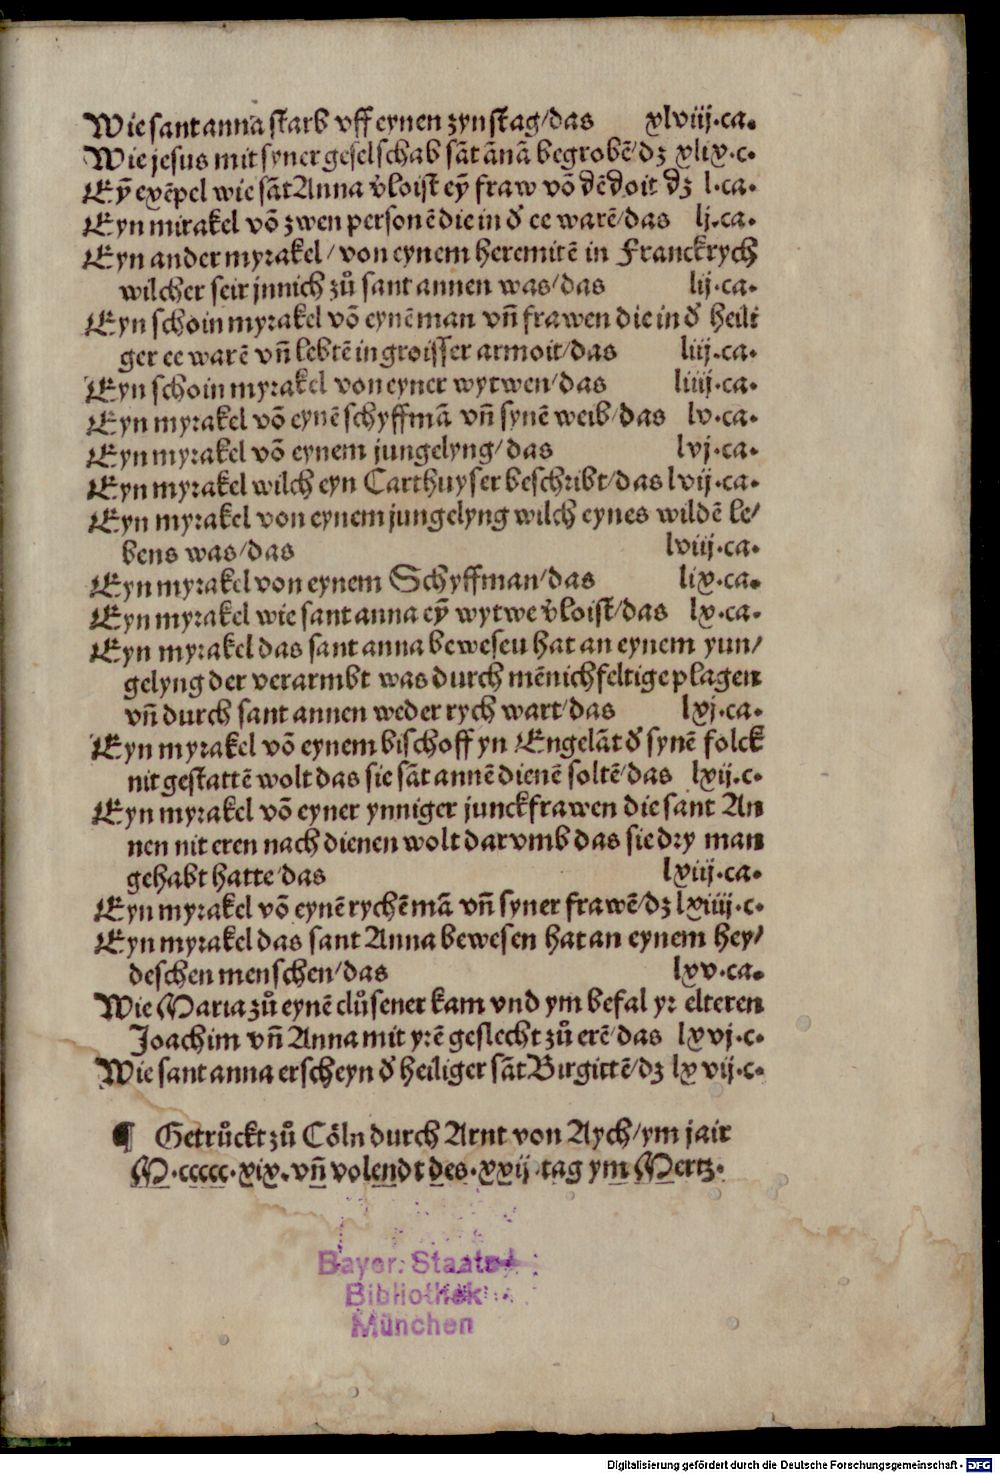 Wie sant anna starb vff eynen zynstag/das xlviij.ca.
Wie jesus mit syner geselschab sãt ãnã begrobẽ/dz xlix.c.
Eỹ exẽpel wie sãt Anna v̉loist eỹ fraw võ dẽ doit dz l.ca.
Eyn mirakel võ zwen personẽ die in d̉ ee warẽ/das lj.ca.
Eyn ander myrakel/von eynem heremitẽ in Franckrych
wilcher seir jnnich zů sant annen was/das lij.ca.
Eyn schoin myrakel võ eynẽ man vñ frawen die in d̉ heili
ger ee warẽ vñ lebtẽ in groisser armoit/das liij.ca.
Eyn schoin myrakel von eyner wytwen/das liiij.ca.
Eyn myrakel võ eynẽ schyffmã vñ synẽ weib/das lv.ca.
Eyn myrakel võ eynem jungelyng/das lvj.ca.
Eyn myrakel wilch eyn Carthuyser beschribt/das lvij.ca.
Eyn myrakel von eynem jungelyng wilch eynes wildẽ le/
bens was/das lviij.ca.
Eyn myrakel von eynem Schyffman/das lix.ca.
Eyn myrakel wie sant anna eỹ wytwe v̉loist/das lx.ca.
Eyn myrakel das sant anna beweseu hat an eynem yun/
gelyng der verarmbt was durch mẽnichfeltige plagen
vñ durch sant annen weder rych wart/das lxj.ca.
Eyn myrakel võ eynem bischoff yn Engelãt d̉ synẽ folck
nit gestattẽ wolt das sie sãt annẽ dienẽ soltẽ/das lxij.c.
Eyn myrakel võ eyner ynniger junckfrawen die sant An
nen nit eren nach dienen wolt darvmb das sie dry man
gehabt hatte/das lxiij.ca.
Eyn myrakel võ eynẽ rychẽ mã vñ syner frawẽ/dz lxiiij.c.
Eyn myrakel das sant Anna bewesen hat an eynem hey/
deschen menschen/das lxv.ca.
Wie Maria zů eynẽ clůsener kam vnd ym befal yr elteren
Joachim vñ Anna mit yrẽ geslecht zů erẽ/das lxvj.c.
Wie sant anna erscheyn d̉ heiliger sãt Birgittẽ/dz lxvij.c.
¶ Getrůckt zů Cöln durch Arnt von Aych/ym jair
M.ccccc.xix.vñ volendt des.xxij.tag ym Mertz.
Bayer. Staats-
Bibliothek
München
Digitalisierung gefördert durch die Deutsche Forschungsgemeinschaft - DFG